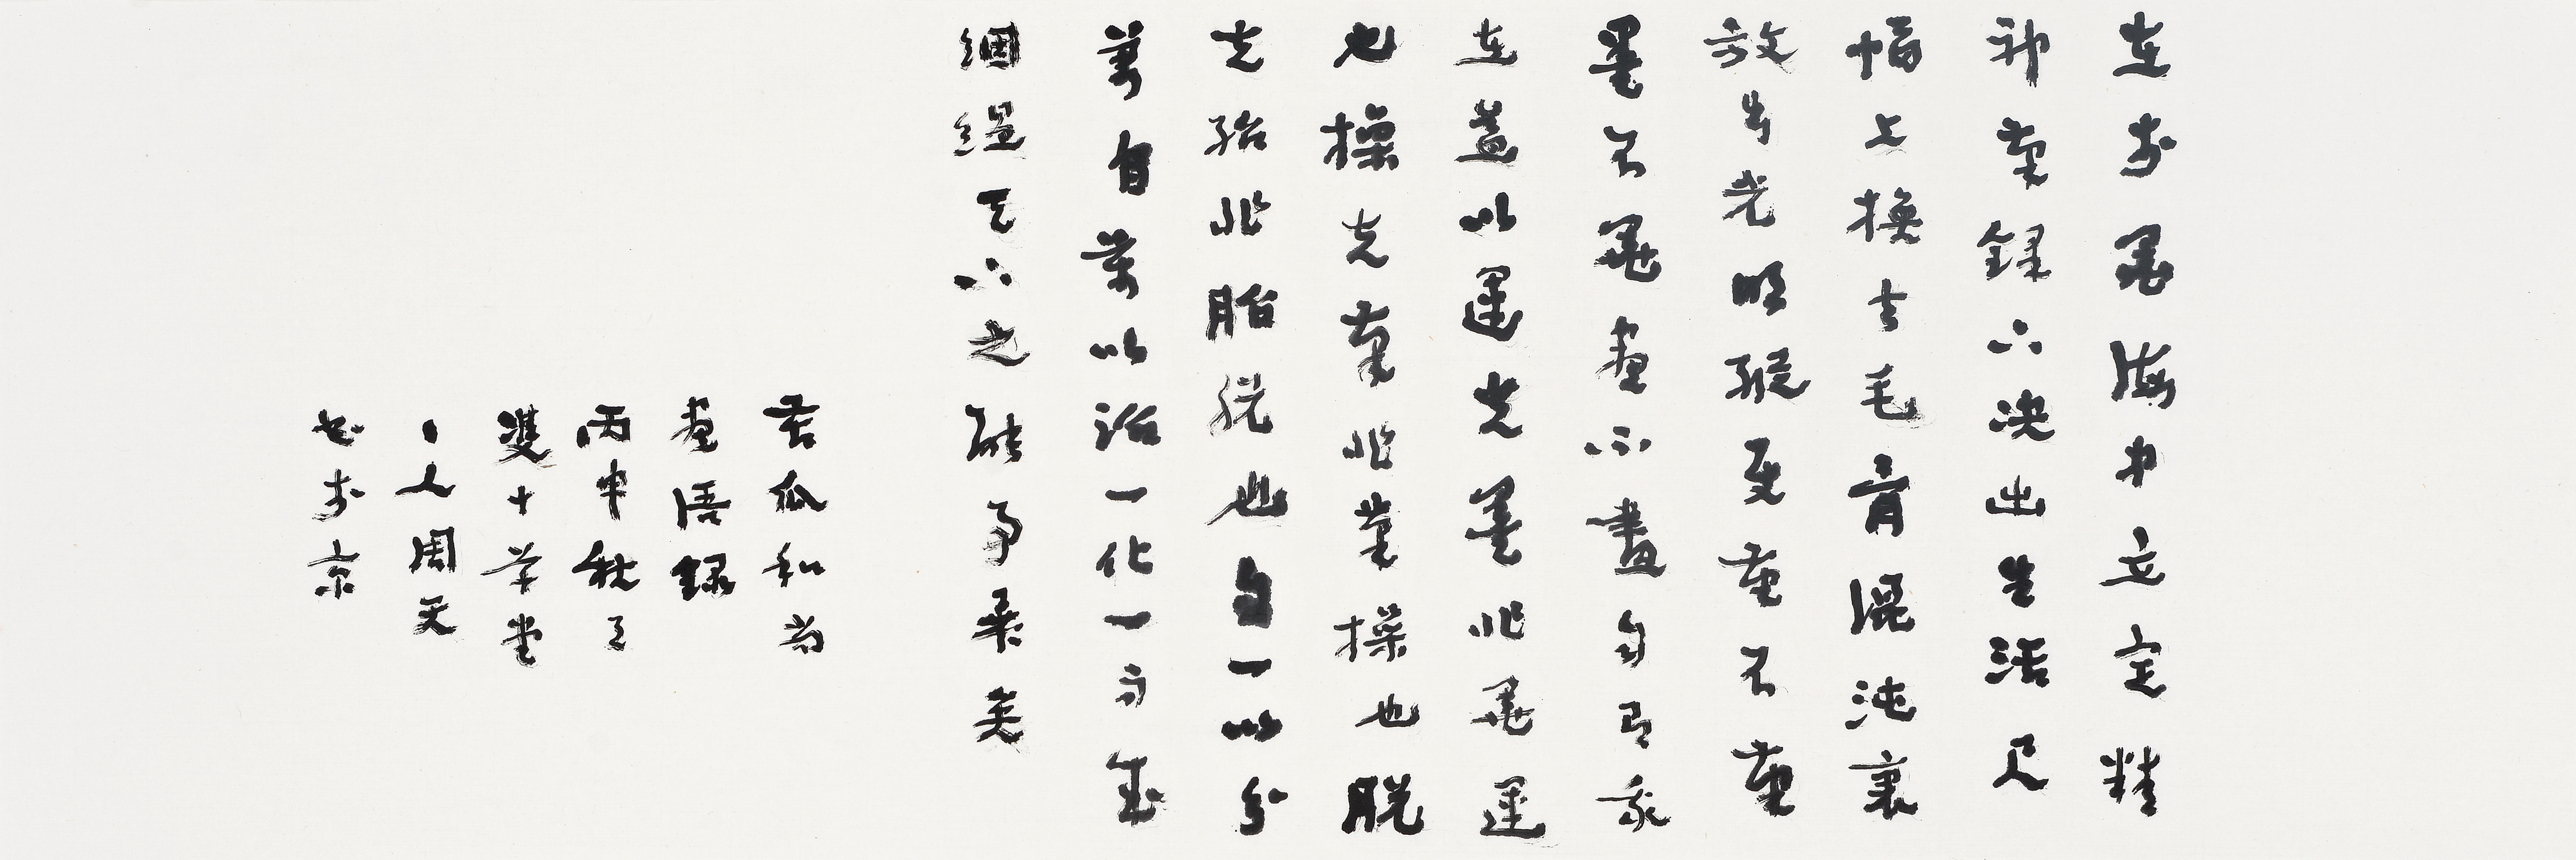 在于墨海中立定精
神筆鋒下決出生活尺
幅上換去毛骨混沌裏
放出光明縱使筆不筆
墨不墨畫不畫自有我
在蓋以運夫墨非墨運
也操夫筆非筆操也脫
夫胎非胎脫也自一以分
萬自萬以治一化一而成
絪緼天下之能事畢矣
苦瓜和尚
畫語錄
丙申秋
雙十草堂
主人周天
書于京